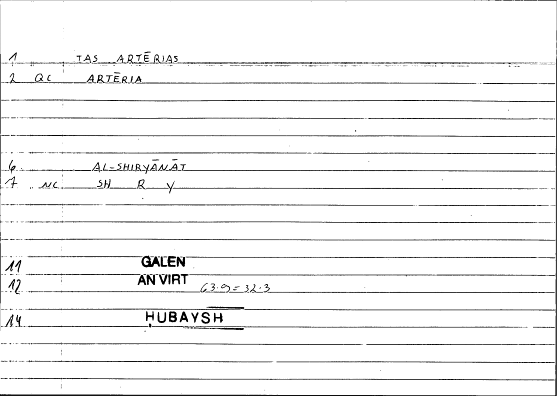 1 TAS ARTĒRIAS
2 QC ARTĒRIA
6 AL-SHIRYĀNĀT
7 NC SH R Y
11 GALEN
12 AN VIRT 63.9=32.3
14 ḤUBAYSH